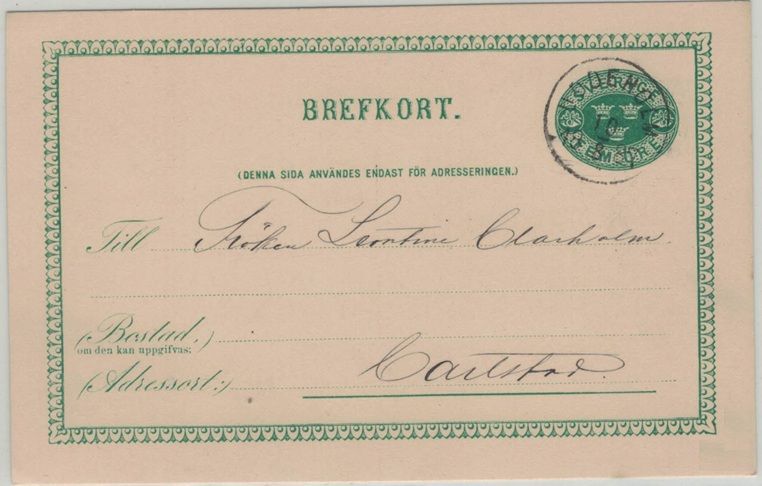 BREFKORT.
(DENNA SIDA ANVÄNDES ENDAST FÖR ADRESSERINGEN.)
Till Fröken Leontine Clarholm.
(Bostad,)
om den kan uppgifvas:
Carlstad.
(Adressort:)